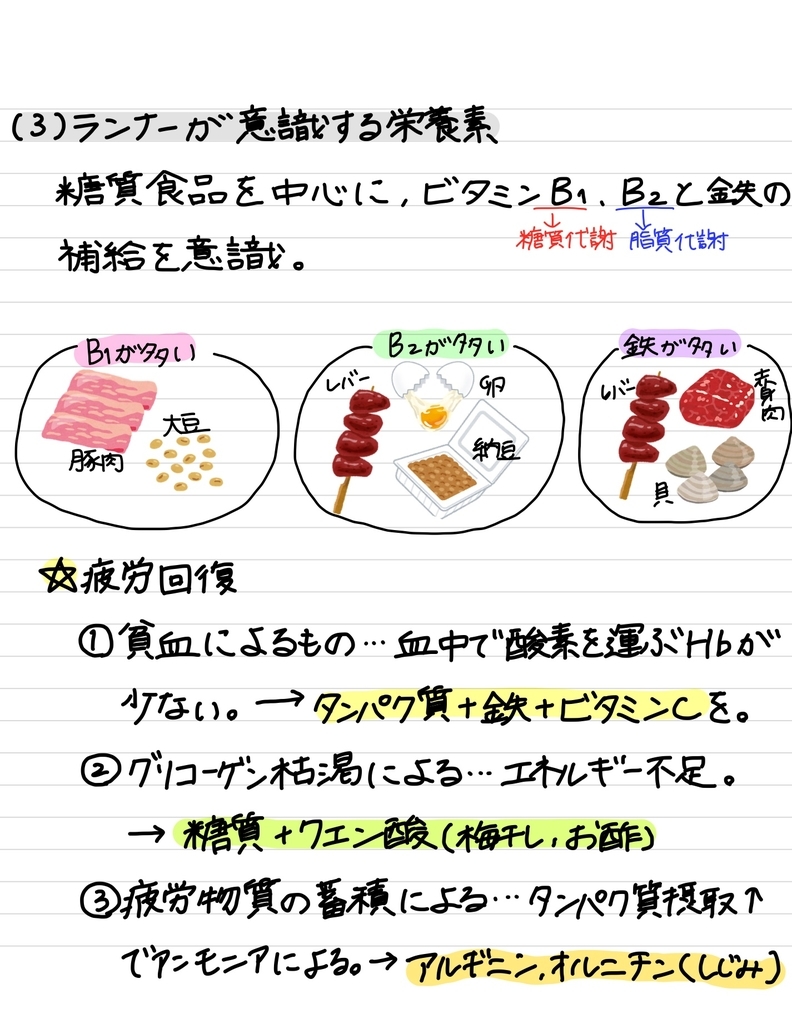 (3)ランナーが意識する栄養素
糖質食品を中心に,ビタミンB1、B2と鉄の
糖質代謝 脂質代謝
補給を意識。
B1が多い
豚肉
大豆
B2が多い
レバー
卵
納豆
鉄が多い
レバー
赤身肉
貝
☆疲労回復
①貧血によるもの…血中で酸素を運ぶHbが
少ない。→タンパク質+鉄+ビタミンCを。
②グリコーゲン枯渇による…エネルギー不足。
→糖質+クエン酸(梅干し,お酢)
③疲労物質の蓄積による…タンパク質摂取↑
でアンモニアによる。→アルギニン,オルニチン(しじみ)